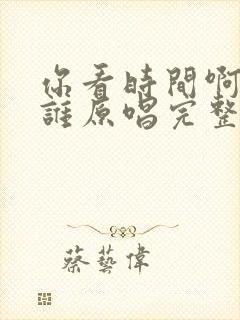 你看時間啊
誰原唱完整
蔡藝偉